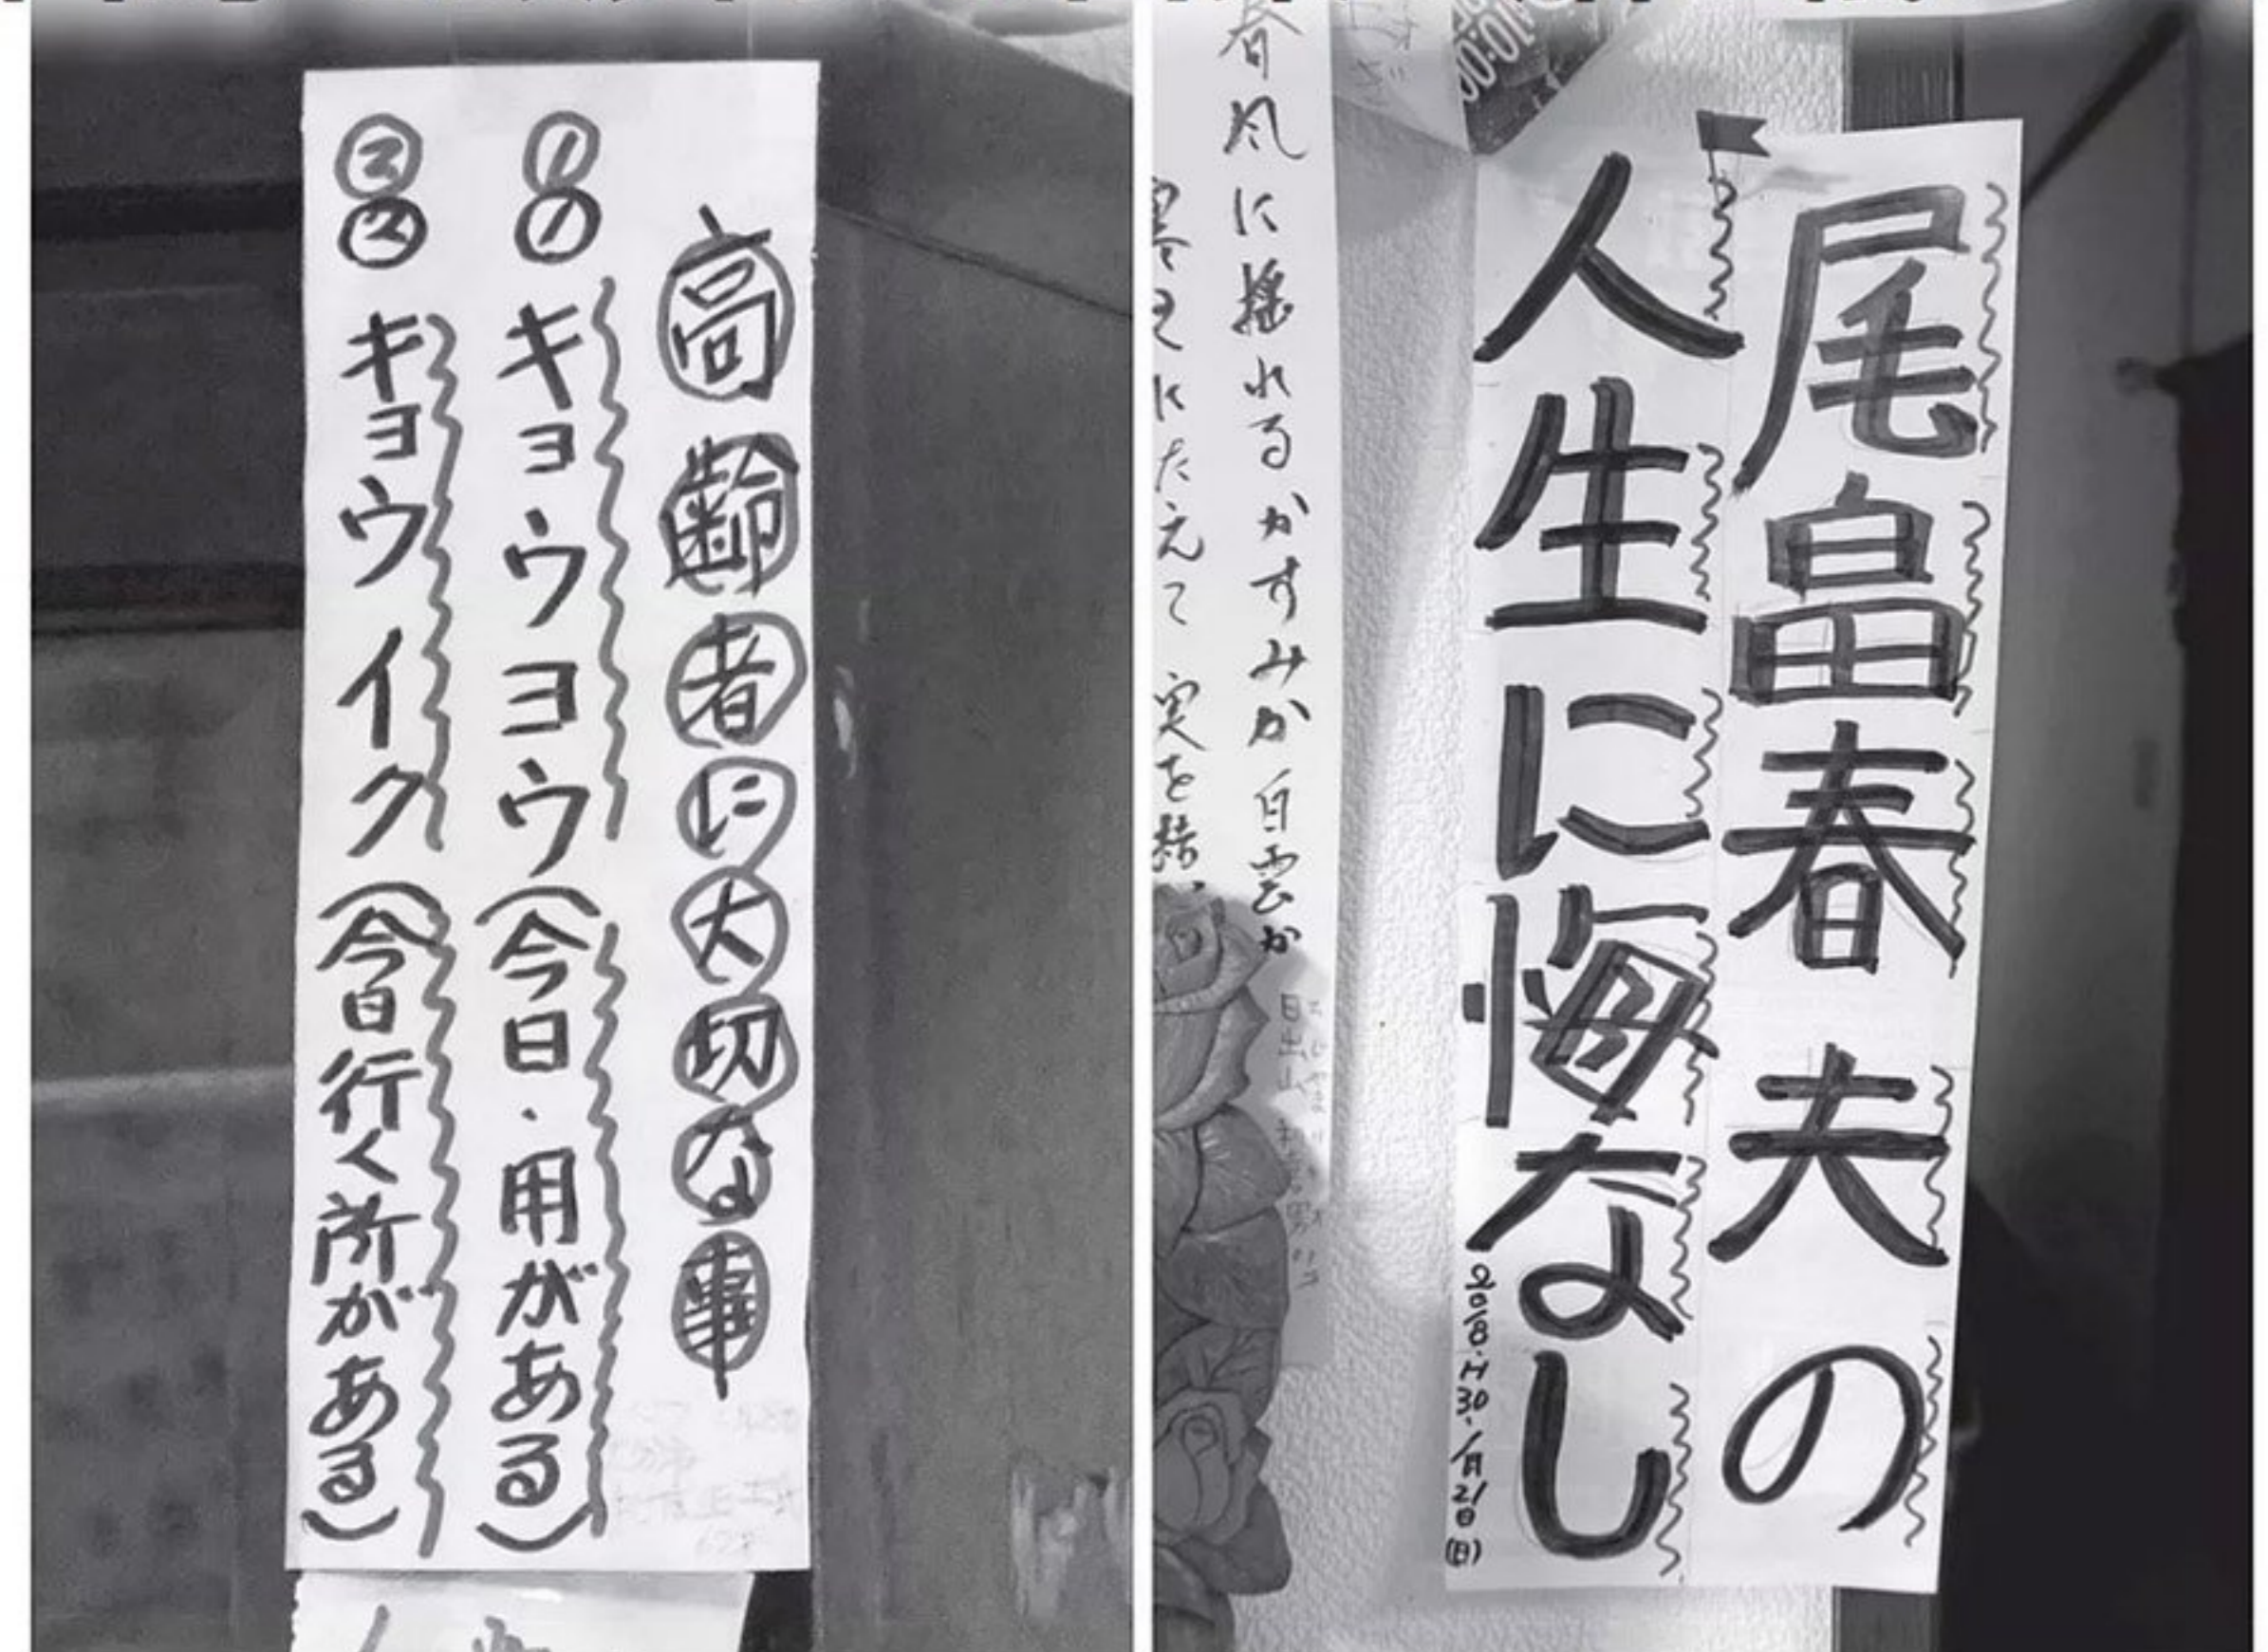 高齢者に大切な事
①① キョウヨウ（今日・用がある）
②② キョウイク（今日行く所がある）
尾畠春夫の
人生に悔なし
2018.H30.1月21日(日)
10:00
春風に揺れるかすみか白雲か
寒さにたえて実を結